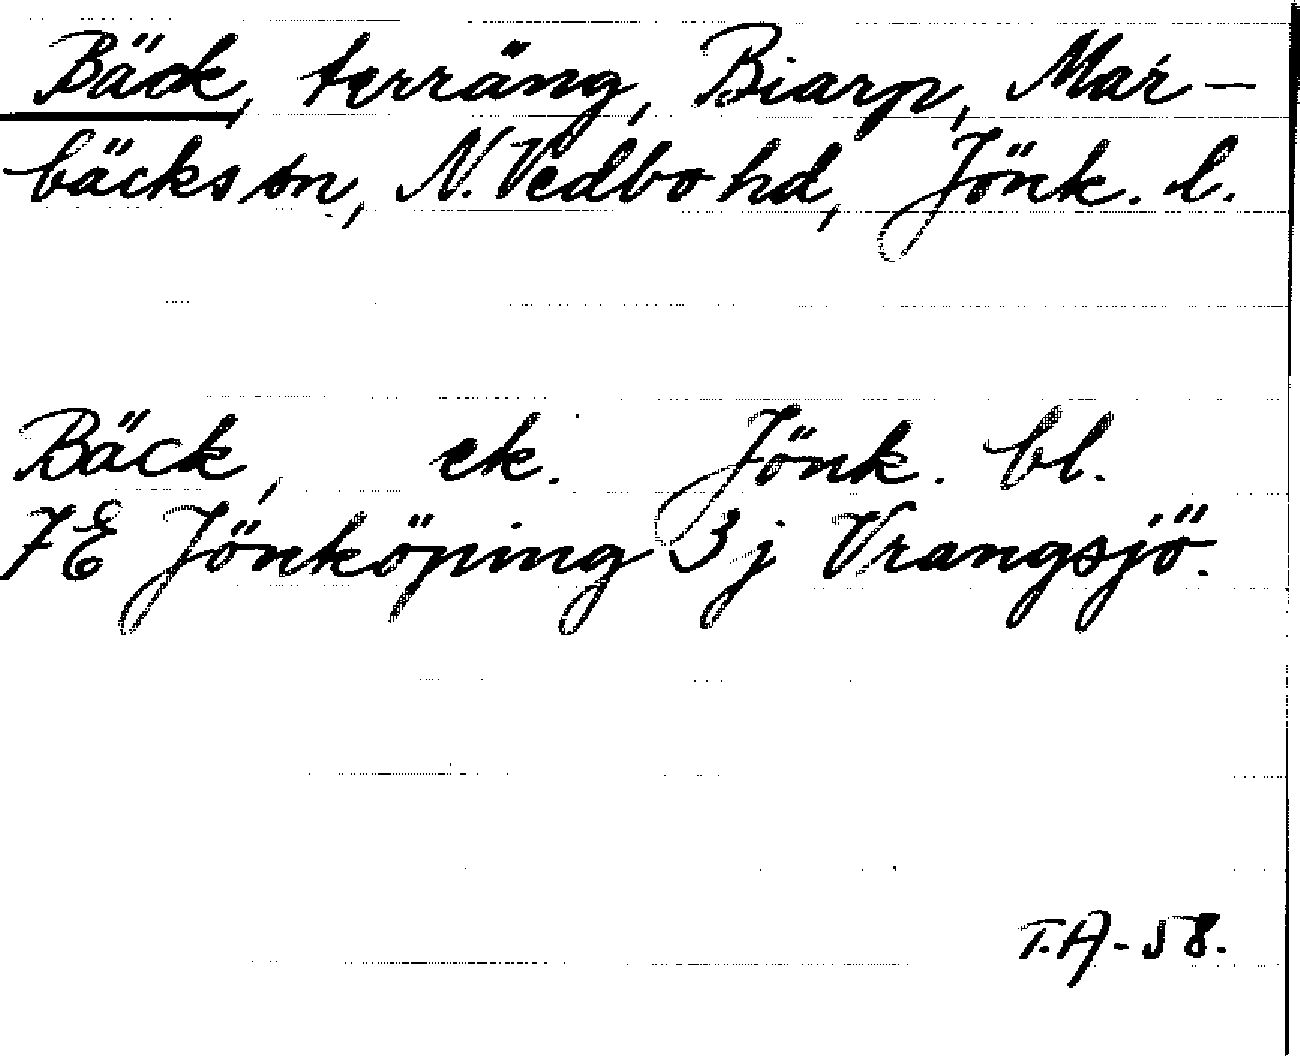 Bäck, terräng, Biarp, Mar-
bäcks sn, N. Vedbo hd, Jönk. l.
Bäck, ek. Jönk. bl.
7E Jönköping 3j Vrangsjö.
T.A-58.